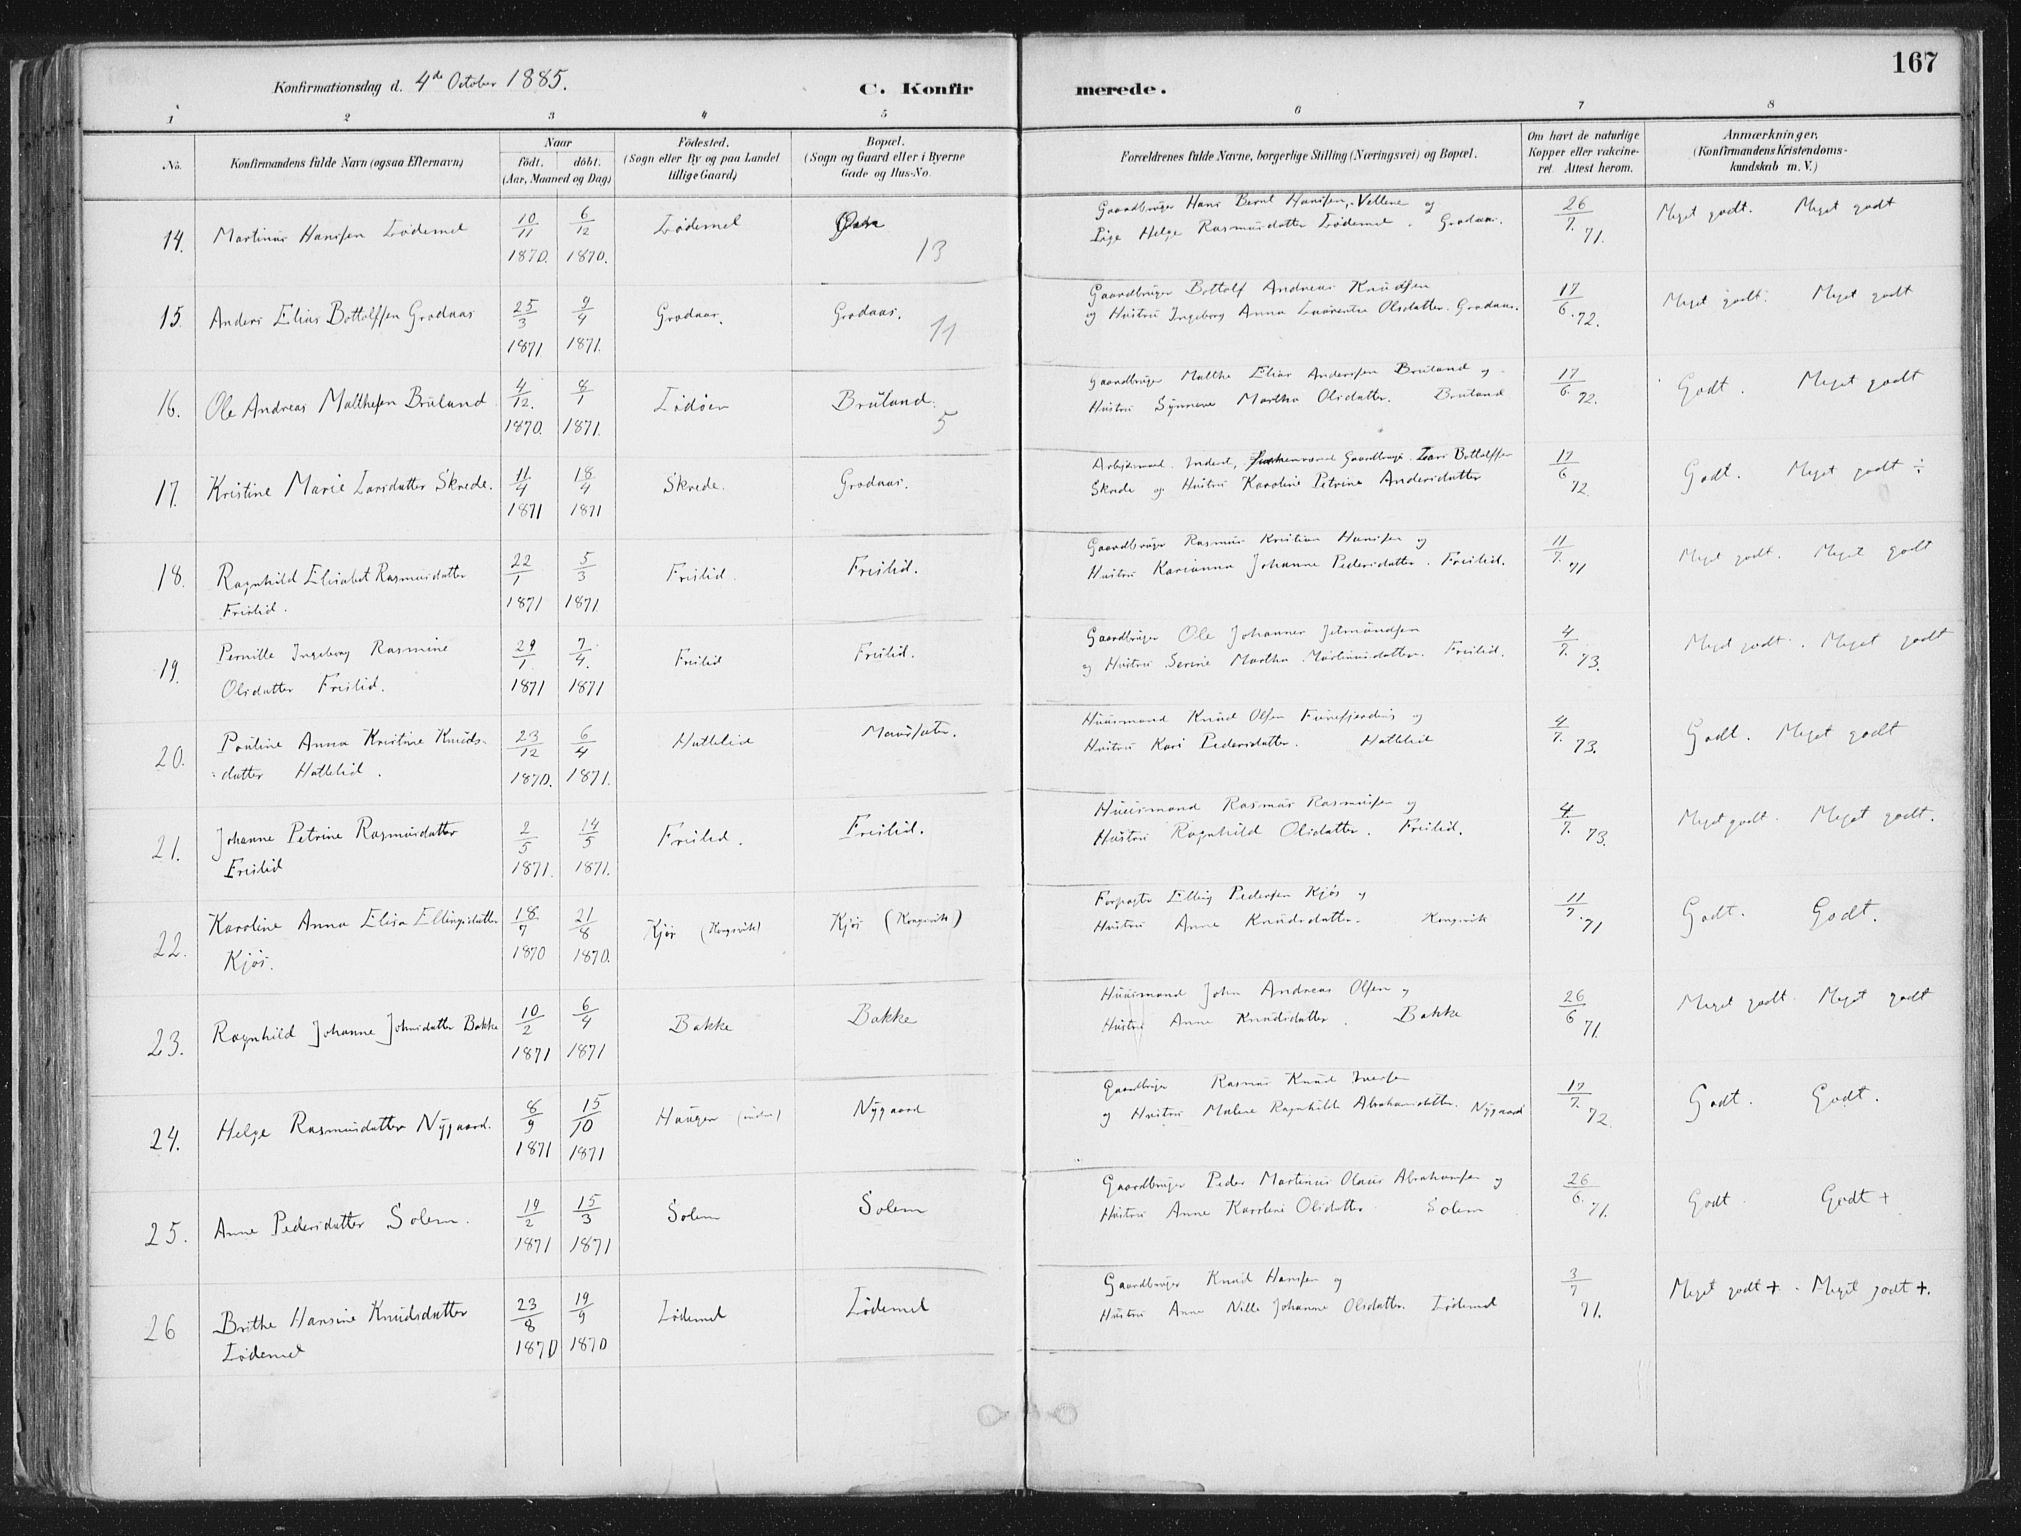 167
Konfirmationsdag d. 4de October 1885.
C. Konfirmerede.
1 2 3 4 5 6 7 8
No. Konfirmandens fulde Navn (ogsaa Efternavn)
Naar født. døbt. (Aar, Maaned og Dag)
Fødested. (Sogn eller By og paa Landet tillige Gaard)
Bopæl. (Sogn og Gaard eller i Byerne Gade og Hus-No.
Forældrenes fulde Navne, borgerlige Stilling (Næringsvei) og Bopæl.
Om havt de naturlige Kopper eller vakcineret. Attest herom.
Anmærkninger, (Konfirmandens Kristendomskundskab m. V.)
14. Martinus Hansen Lødemel 10/11 1870. 6/12 1870. Lødemel 13
Gaardbruger Hans Bernt Hansen, Vellene og
Pige Helge Rasmusdatter Lødemel. Grodaas. 26/7. 71. Meget godt. Meget godt
15. Anders Elias Bottolfsen Grodaas 25/3 1871 9/4 1871. Grodaas. Grodaas. 11
Gaardbruger Bottolf Andreas Knudsen
og Hustru Ingeborg Anna Laurentse Olsdatter. Grodaas. 17/6. 72. Meget godt. Meget godt
16. Ole Andreas Malthesen Bruland 4/12. 1870. 8/1 1871. Lødøen Bruland. 5
Gaardbruger Malthe Elias Andersen Bruland og
Hustru Synneve Martha Olsdatter. Bruland 17/6. 72. Godt. Meget godt
17. Kristine Marie Larsdatter Skrede. 11/4 1871 18/4 1871 Skrede. Grodaas.
Arbeidsmand. Inderst, Gaardbruger Lars Bottolfsen
Skrede og Hustru Karoline Petrine Andersdatter 17/6 72. Godt. Meget godt ÷
18. Ragnhild Elisabet Rasmusdatter
Frislid. 22/1 1871 5/3 1871 Frislid. Frislid.
Gaardbruger Rasmus Kristian Hansen og
Hustru Karianna Johanne Pedersdatter. Frislid. 11/7. 71 Meget godt. Meget godt
19. Pernille Ingeborg Rasmine
Olsdatter Frislid. 29/1. 1871 7/4. 1871 Frislid Frislid.
Gaardbruger Ole Johannes Jetmundsen
og Hustru Serine Martha Martinusdatter. Frislid. 4/7. 73. Meget godt. Meget godt
20. Pouline Anna Kristine Knuds-
datter Hatlelid. 23/12 1870. 6/4 1871. Hatlelid Maursæter.
Huusmand Knud Olsen Furefjorden og
Hustru Kari Pedersdatter. Hatlelid 4/7. 73. Godt. Meget godt
21. Johanne Petrine Rasmusdatter
Frislid 2/5 1871. 14/5 1871. Frislid. Frislid.
Huusmand Rasmus Rasmusen og
Hustru Ragnhild Olsdatter. Frislid. 4/7. 73. Meget godt. Meget godt.
22. Karoline Anna Elisa Ellingsdatter
Kjøs. 18/7 1870 21/8 1870. Kjøs (Kongsvik) Kjøs (Kongsvik)
Forpagter Elling Pedersen Kjøs og
Hustru Anne Knudsdatter. Kongsvik 11/7. 71 Godt. Godt.
23. Ragnhild Johanne Johnsdatter Bakke 10/2 1871 6/4 1871 Bakke Bakke
Huusmand John Andreas Olsen og
Hustru Anne Knudsdatter. Bakke 26/6 71. Meget godt. Meget godt
24. Helge Rasmusdatter Nygaard. 8/9 1871 15/10 1871 Haugen Nygaard
Gaardbruger Rasmus Knud Iversen
og Hustru Malene Ragnhilde Abrahamsdatter. Nygaard 17/7. 72. Godt. Godt.
25. Anne Pedersdatter Solem. 14/2 1871 15/3 1871 Solem Solem
Gaardbruger Peder Martinus Olaus Abrahamsen og
Hustru Anne Karoline Olsdatter. Solem 26/6. 71. Godt Godt +
26 Brithe Hansine Knudsdatter
Lødemel 23/8 1870 19/9 1870 Lødemel Lødemel
Gaardbruger Knud Hansen og
Hustru Anne Nille Johanne Olsdatter. Lødemel 3/7 71. Meget godt +. Meget godt +.